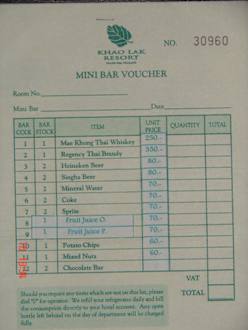 KHAO LAK
RESORT
NO. 30960
MINI BAR VOUCHER
Room No.
Mini Bar Date
BAR CODE BAR STOCK ITEM UNIT PRICE QUANTITY TOTAL
1 1 Mae Khong Thai Whiskey 250.-
2 1 Regency Thai Brandy 350.-
3 2 Heineken Beer 80.-
4 2 Singha Beer 80.-
5 2 Mineral Water 70.-
6 2 Coke 70.-
7 2 Sprite 70.-
8 1 Fruit Juice O. 70.-
9 1 Fruit Juice P. 70.-
10 1 Potato Chips 60.-
11 1 Mixed Nuts 60.-
12 2 Chocolate Bar
VAT
TOTAL
Should you require any items which are not on this list, please
dial "0" for operator. We refill your refrigerator daily and bill
the consumption directly to your hotel account. Any open
bottle left behind on the day of department will be charged
fully.